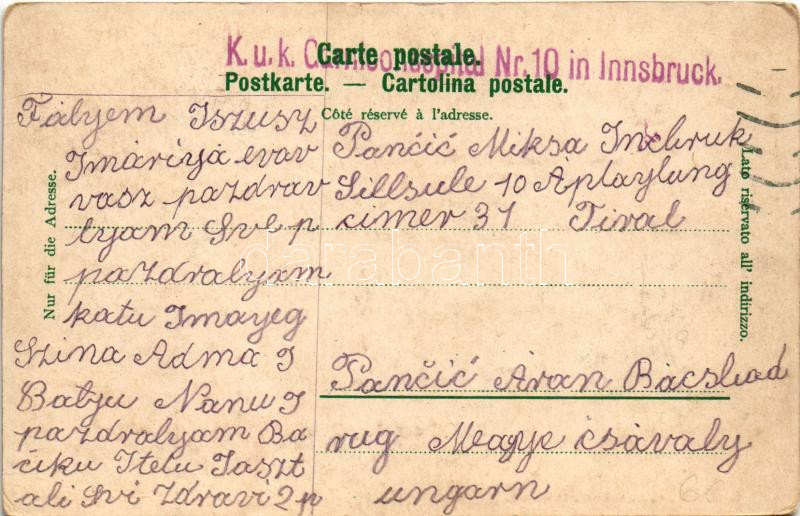 K. u. k. Garnisonsspital Nr. 10 in Innsbruck.
Carte postale.
Postkarte. — Cartolina postale.
Côté réservé à l'adresse.
Nur für die Adresse.
Lato riservato all' indirizzo.
Falyem Iszusz
Imariya evav
vasz pazdrav
lyam Sve p
pazdralyam
katu Imayeg
Szina Adma I
Batyu Nanu I
pazdralyam Ba
čiku Itelu Iaszt
ali Svi Zdravi 2 p
Pančić Miksa Inchruk
Sillsule 10 Aplaylung
cimer 31 Tiral
Pančić Aran Bacsbad
rug čsávaly
ungarn
darabanth